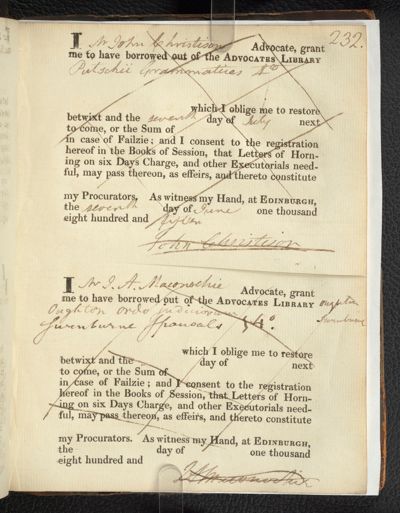 232.
I Mr John Christison Advocate, grant
me to have borrowed out of the ADVOCATES LIBRARY
Putschii Grammatices 4to
which I oblige me to restore
betwixt and the seventh day of July next
to come, or the Sum of
in case of Failzie; and I consent to the registration
hereof in the Books of Session, that Letters of Horn-
ing on six Days Charge, and other Executorials need-
ful, may pass thereon, as effeirs, and thereto constitute
my Procurators. As witness my Hand, at EDINBURGH,
the seventh day of June one thousand
eight hundred and fifteen
John Christison
I Mr J. A. Maconochie Advocate, grant
me to have borrowed out of the ADVOCATES LIBRARY
Oughton ordo judiciorum Oughton
Swinburne Spousals 4to. Swinburne
which I oblige me to restore
betwixt and the day of next
to come, or the Sum of
in case of Failzie; and I consent to the registration
hereof in the Books of Session, that Letters of Horn-
ing on six Days Charge, and other Executorials need-
ful, may pass thereon, as effeirs, and thereto constitute
my Procurators. As witness my Hand, at EDINBURGH,
the day of one thousand
eight hundred and
J A Maconochie